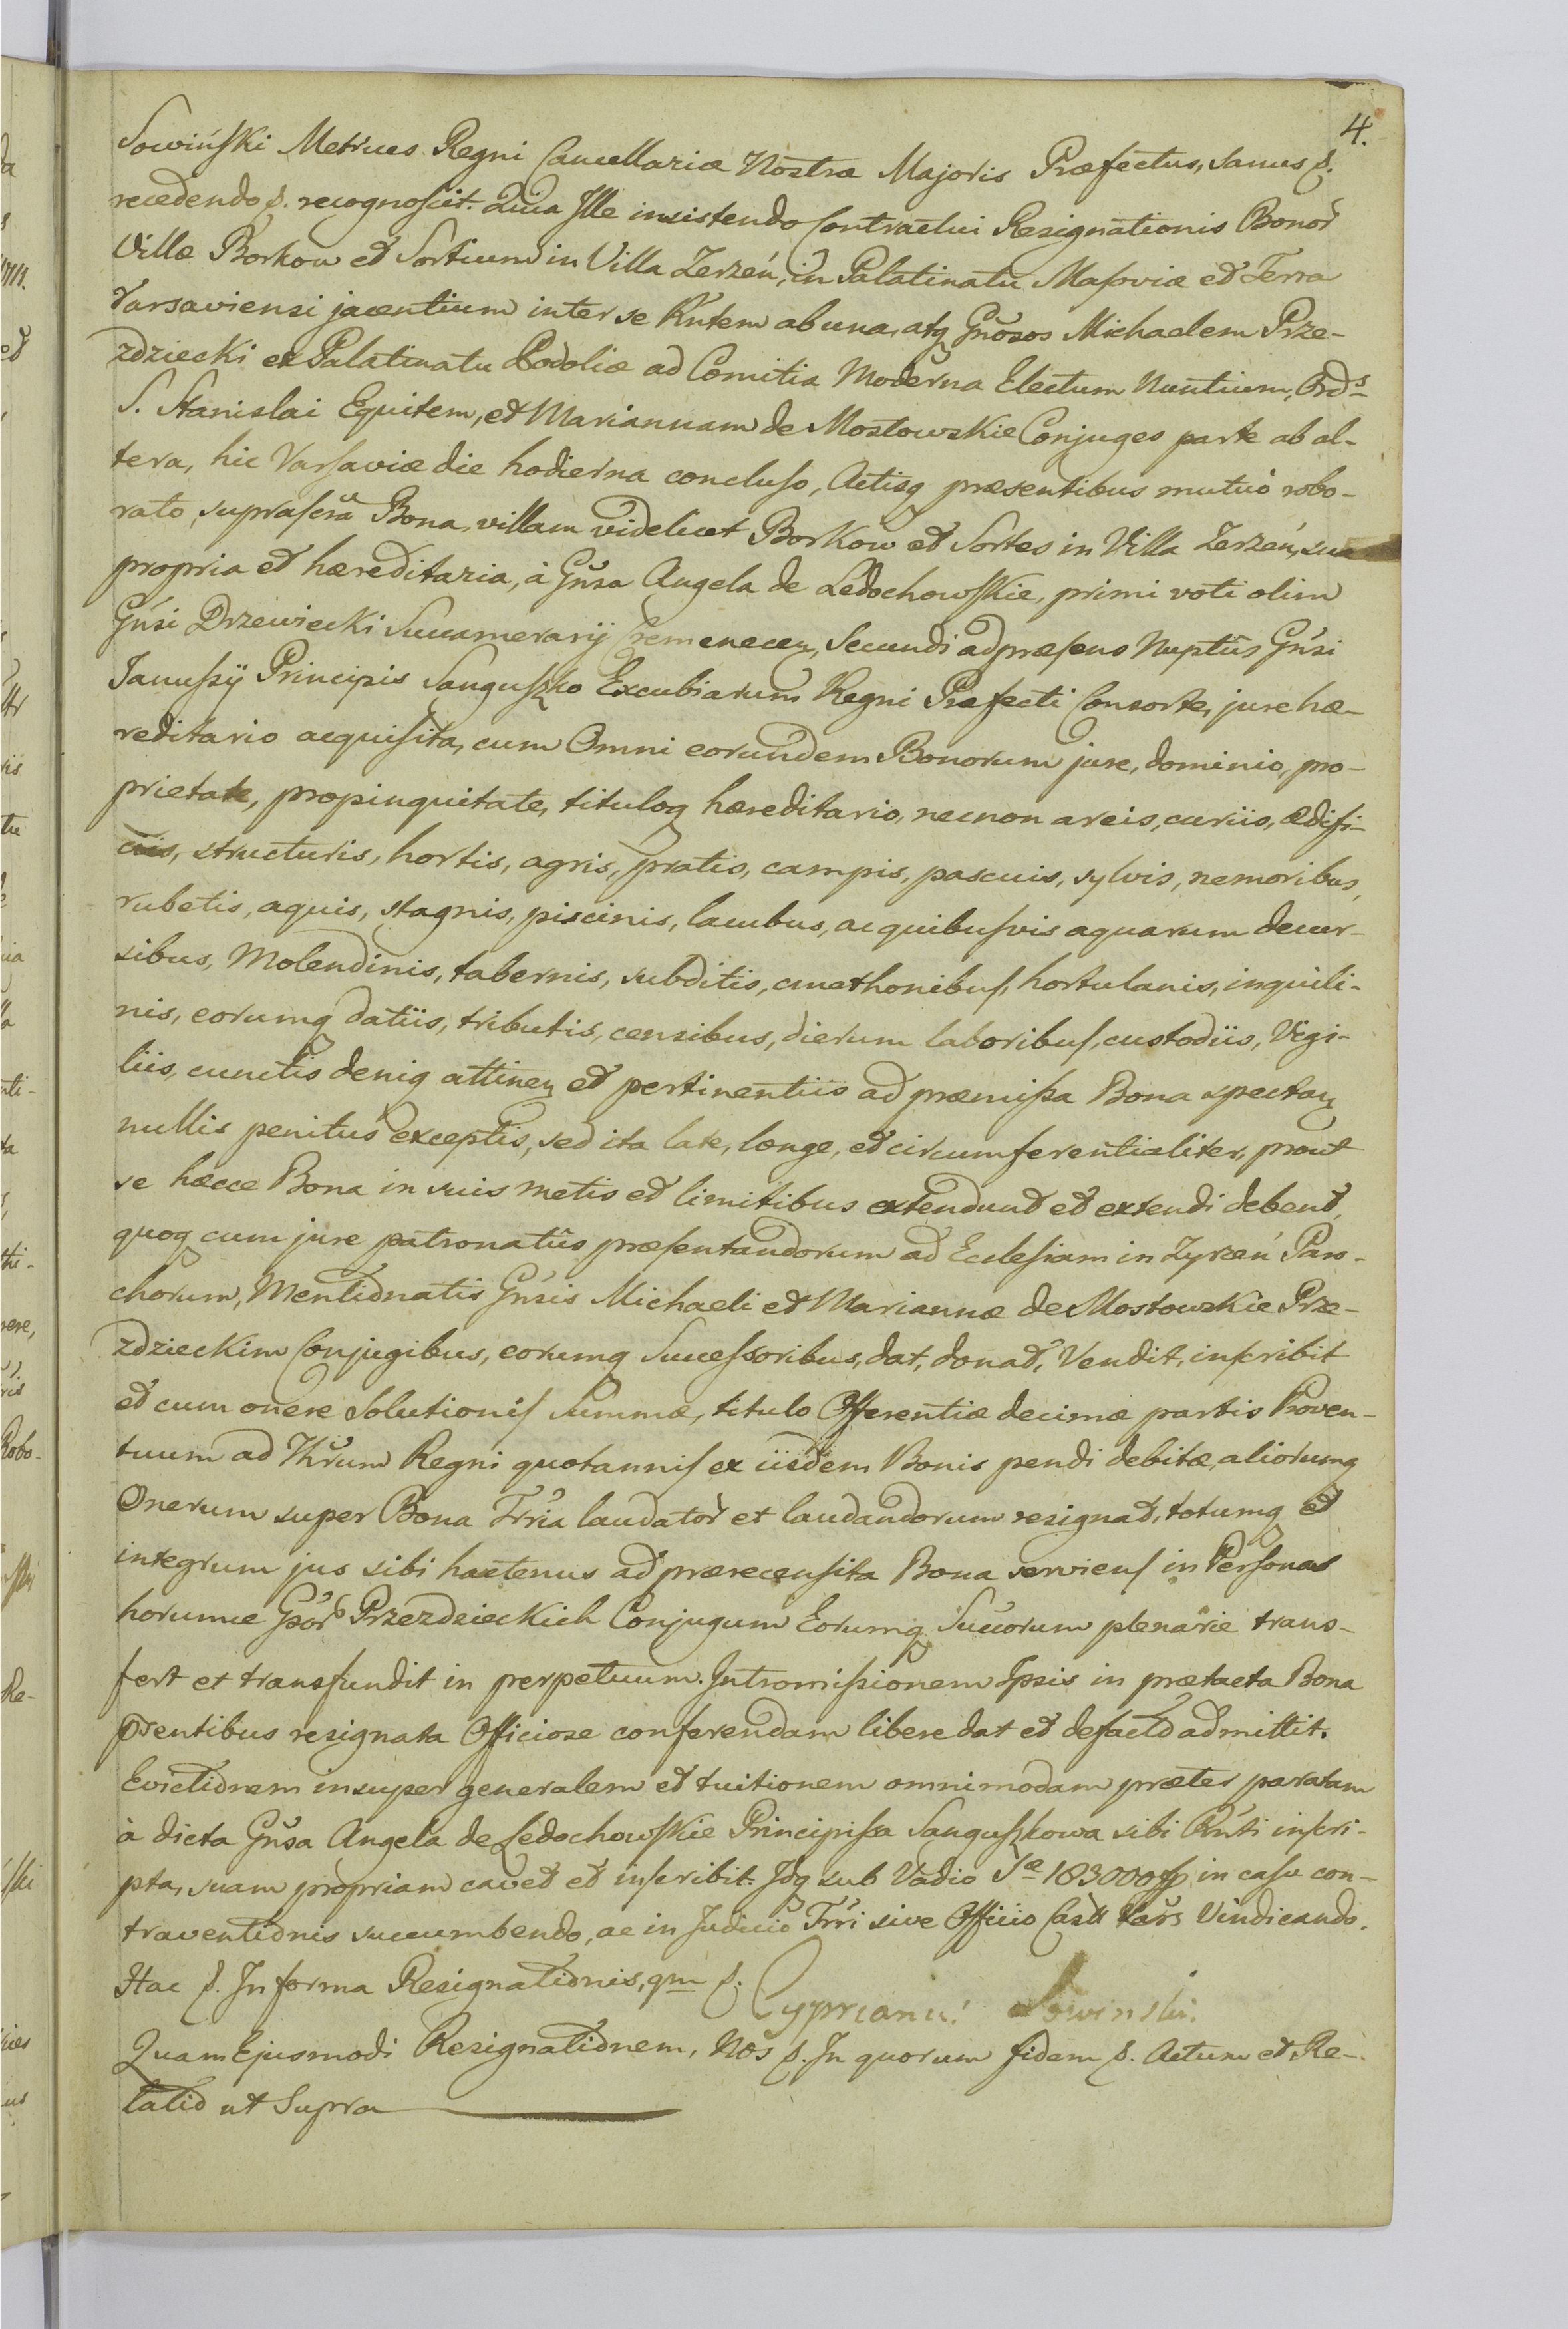 4.
Sowiński Metrices Regni Cancellariæ Nostræ Majoris Præfectus, sanus p.
recedendo p. recognoscit. Quia Ille insistendo Contractui Resignationis Bonor̃
Villæ Borkow et Sortium in Villa Zerzeń, in Palatinatu Masoviæ et Terra
Varsaviensi jacentium inter se Rñtem ab una, atq Gñosos Michaelem Prze-
zdziecki ex Palatinatu Podoliæ ad Comitia Moderna Electum Nuntium, Ord̃s
S. Stanislai Equitem, et Mariannam de Mostowskie Conjuges parte ab al-
tera, hic Varsaviæ die hodierna concluso, Actisq præsentibus mutuò robo-
rato, suprascr̃a Bona, villam videlicet Borkow et Sortes in Villa Zerzeń, sua
propria et hæreditaria, à Gñsa Angela de Ledochowskie, primi voti olim
Gńsi Drzewiecki Succamerarij Cremenecen, Secundi ad præsens Nuptûs Gńsi
Janussij Principis Sanguszko Excubiarum Regni Præfecti Consorte, jure hæ-
reditario acquisita, cum Omni eorundem Bonorum jure, dominio, pro-
prietate, propinquitate, tituloq hæreditario, necnon areis, curiis, ædifi-
ciis, structuris, hortis, agris, pratis, campis, pascuis, sylvis, nemoribus,
rubetis, aquis, stagnis, piscinis, lacubus, ac quibusvis aquarum decur-
sibus, Molendinis, tabernis, subditis, cmethonibus, hortulanis, inquili-
nis, eorumq datiis, tributis, censibus, dierum laboribus, custodiis, Vigi-
liis, cunctis deniq attinen et pertinentiis ad præmissa Bona spectan
nullis penitus exceptis, sed ita late, longe, et circumferentialiter, prout
se hæcce Bona in suis metis et limitibus extendunt et extendi debent,
quoq cum jure patronatûs præsentandorum ad Ecclesiam in Zyrzeń Paro-
chorum, Mentionatis Gńsis Michaeli et Mariannæ de Mostowskie Prze-
zdzieckim Conjugibus, eorumq Successoribus, dat, donat, Vendit, inscribit
et cum onere Solutionis Summæ, titulo Offerentiæ decimæ partis Proven-
tuum ad Thr̃um Regni quotannis ex iisdem Bonis pendi debitæ, aliorumq
Onerum super Bona Tr̃ria laudator̃ et laudandorum resignat, totumq et
integrum jus sibi hactenus ad prærecensita Bona serviens in Personas
horumce Gsor̃ Przezdzieckich Conjugum Eorumq Succorum plenarie trans-
fert et transfundit in perpetuum. Intromissionem Ipsis in prætacta Bona
p̃sentibus resignata Officiose conferendam libere dat et defacto admittit.
Evictionem insuper generalem et tuitionem omnimodam præter paratam
à dicta Gñsa Angela de Ledochowskie Principissa Sanguszkowa sibi Rñti inscri-
pta, suam propriam cavet et inscribit. Idq sub Vadio Sæ 183000 in casu con-
traventionis succumbendo, ac in Judicio Tr̃ri sive Officio Castr Vars Vindicando.
Hac p. In forma Resignationis, qm p. Cyprianus Sowinski.
Quam Ejusmodi Resignationem, Nos p. In quorum fidem p. Actum et Re-
latio ut Supra